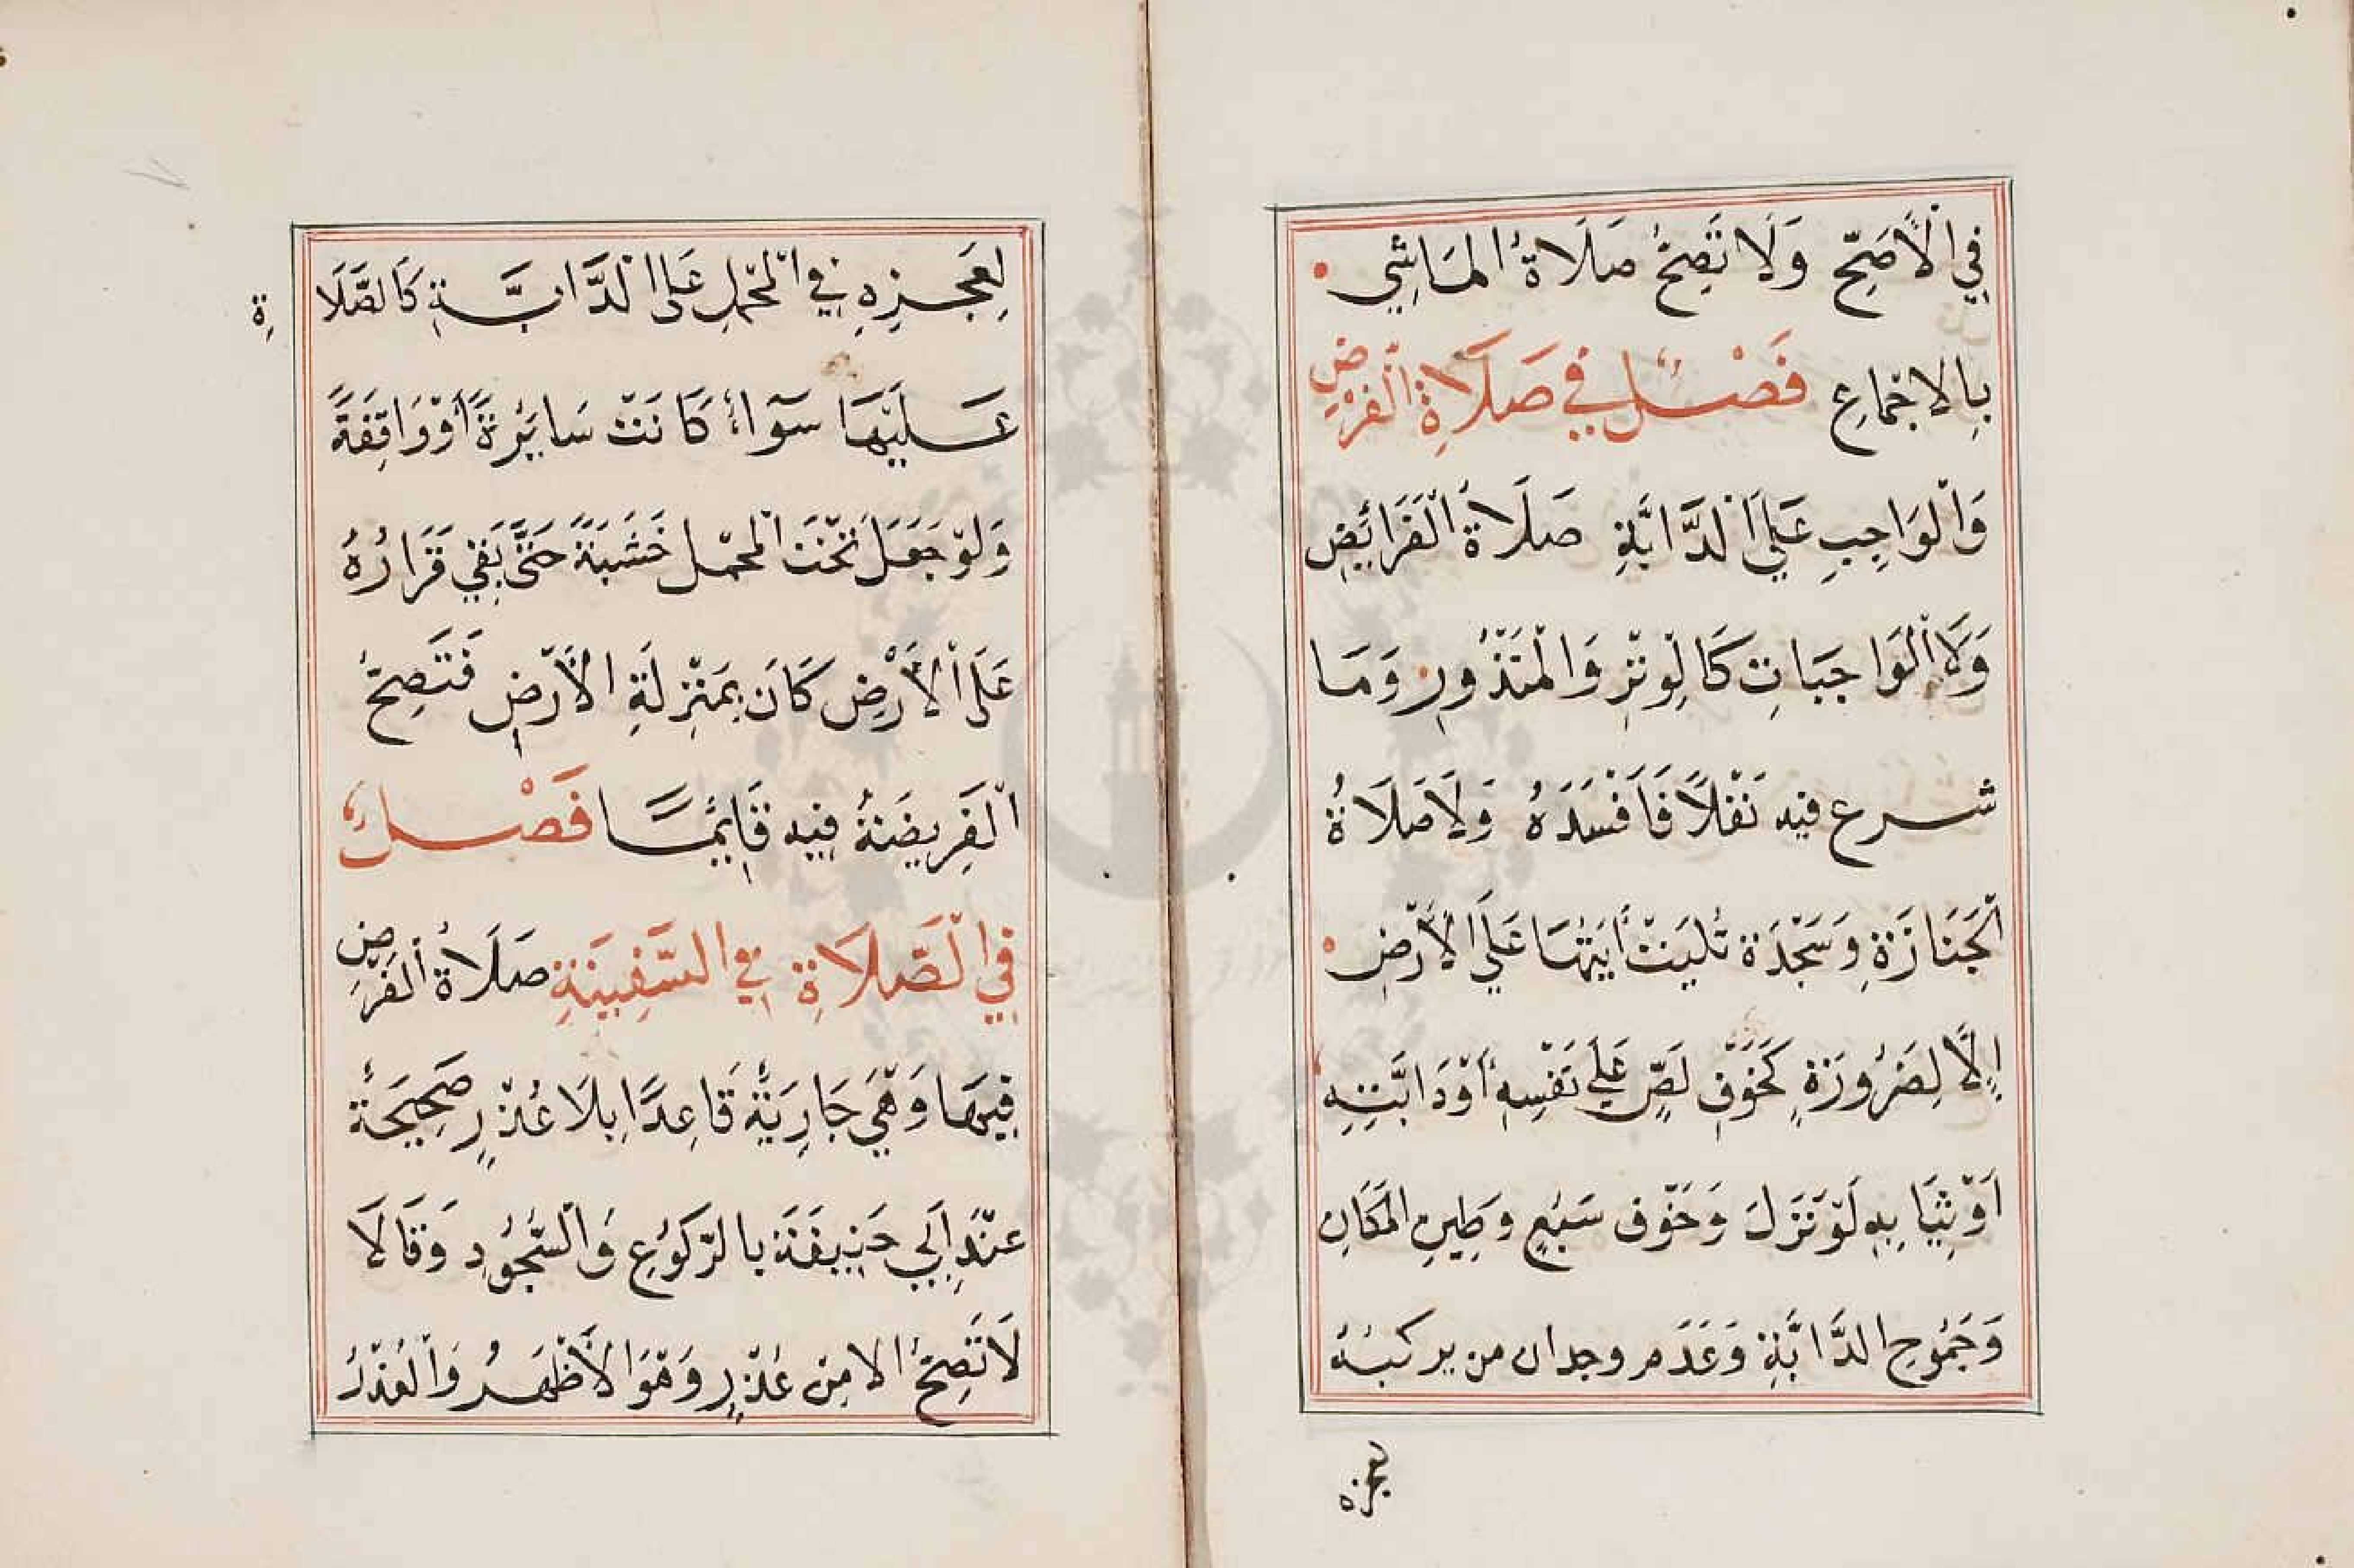 فِي الْأَصَحِّ وَلَا تَصِحُّ صَلَاةُ الْمَاشِي
بِالْاِجْمَاعِ فَصْلٌ فِي صَلَاةِ الْفَرْضِ
وَالْوَاجِبِ عَلَى الدَّابَّةِ صَلَاةُ الْفَرَائِضِ
وَلَا الْوَاجَبَاتِ كَالْوِتْرِ وَالْمَنْذُورِ وَمَا
شرع فيه نَفْلًا فَاَفْسَدَهُ وَلَاصَلَاةُ
الْجَنَازَةِ وَسَجْدَة تُلِيَتْ أَيَتُهَا عَلَى الْأَرْضِ
إِلَّا لِضَرُورَةٍ كَخَوْفِ لَصٍّ عَلَى نَفْسِهِ أَوْدَابَّتِهِ
اَوْثِيَابِهِ لَوْنَزَلَ وَخَوْف سَبُعٍ وَطِينِ الْمَكَانِ
وَجَمُوحِ الدَّابَّةِ وَعَدَم وجدان من يركبهُ
لعجزه
لِعَجْزِهِ فِي الْمَحْمِلِ عَلَى الدَّابَّةِ كَالصَّلَا
ةِ
عَلَيْهَا سَوَاءٌ كَانَتْ سَائِرَةً أَوْ وَاقِفَةً
وَلَوْ جَعَلَ تَحْتَ الْمحْمل خَشَبَةً حَتَّى بَقِيَ قَرَارُهُ
عَلَى الْأَرْضِ كَانَ بِمَنْزِلَةِ الْأَرْضِ فَتَصِحُّ
الْفَرِيضَةُ فِيهِ قَائِمًا فَصْلٌ
فِي الصَّلَاةِ فِي السَّفِينَةِ صَلَاةُ الْفَرْضِ
فِيهَا وَهْيَ جَارِيَةٌ قَاعِدًا بِلَا عُذْرٍ صَحِيحَةٌ
عِنْدَ اَبِي حَنِيفَةَ بِالرُّكُوعِ وَالسُّجُودِ وَقَالَا
لَا تَصِحُّ الا مِنْ عُذْرٍ وَهْوَ الْأَظْهَرُ وَالْعُذْرُ